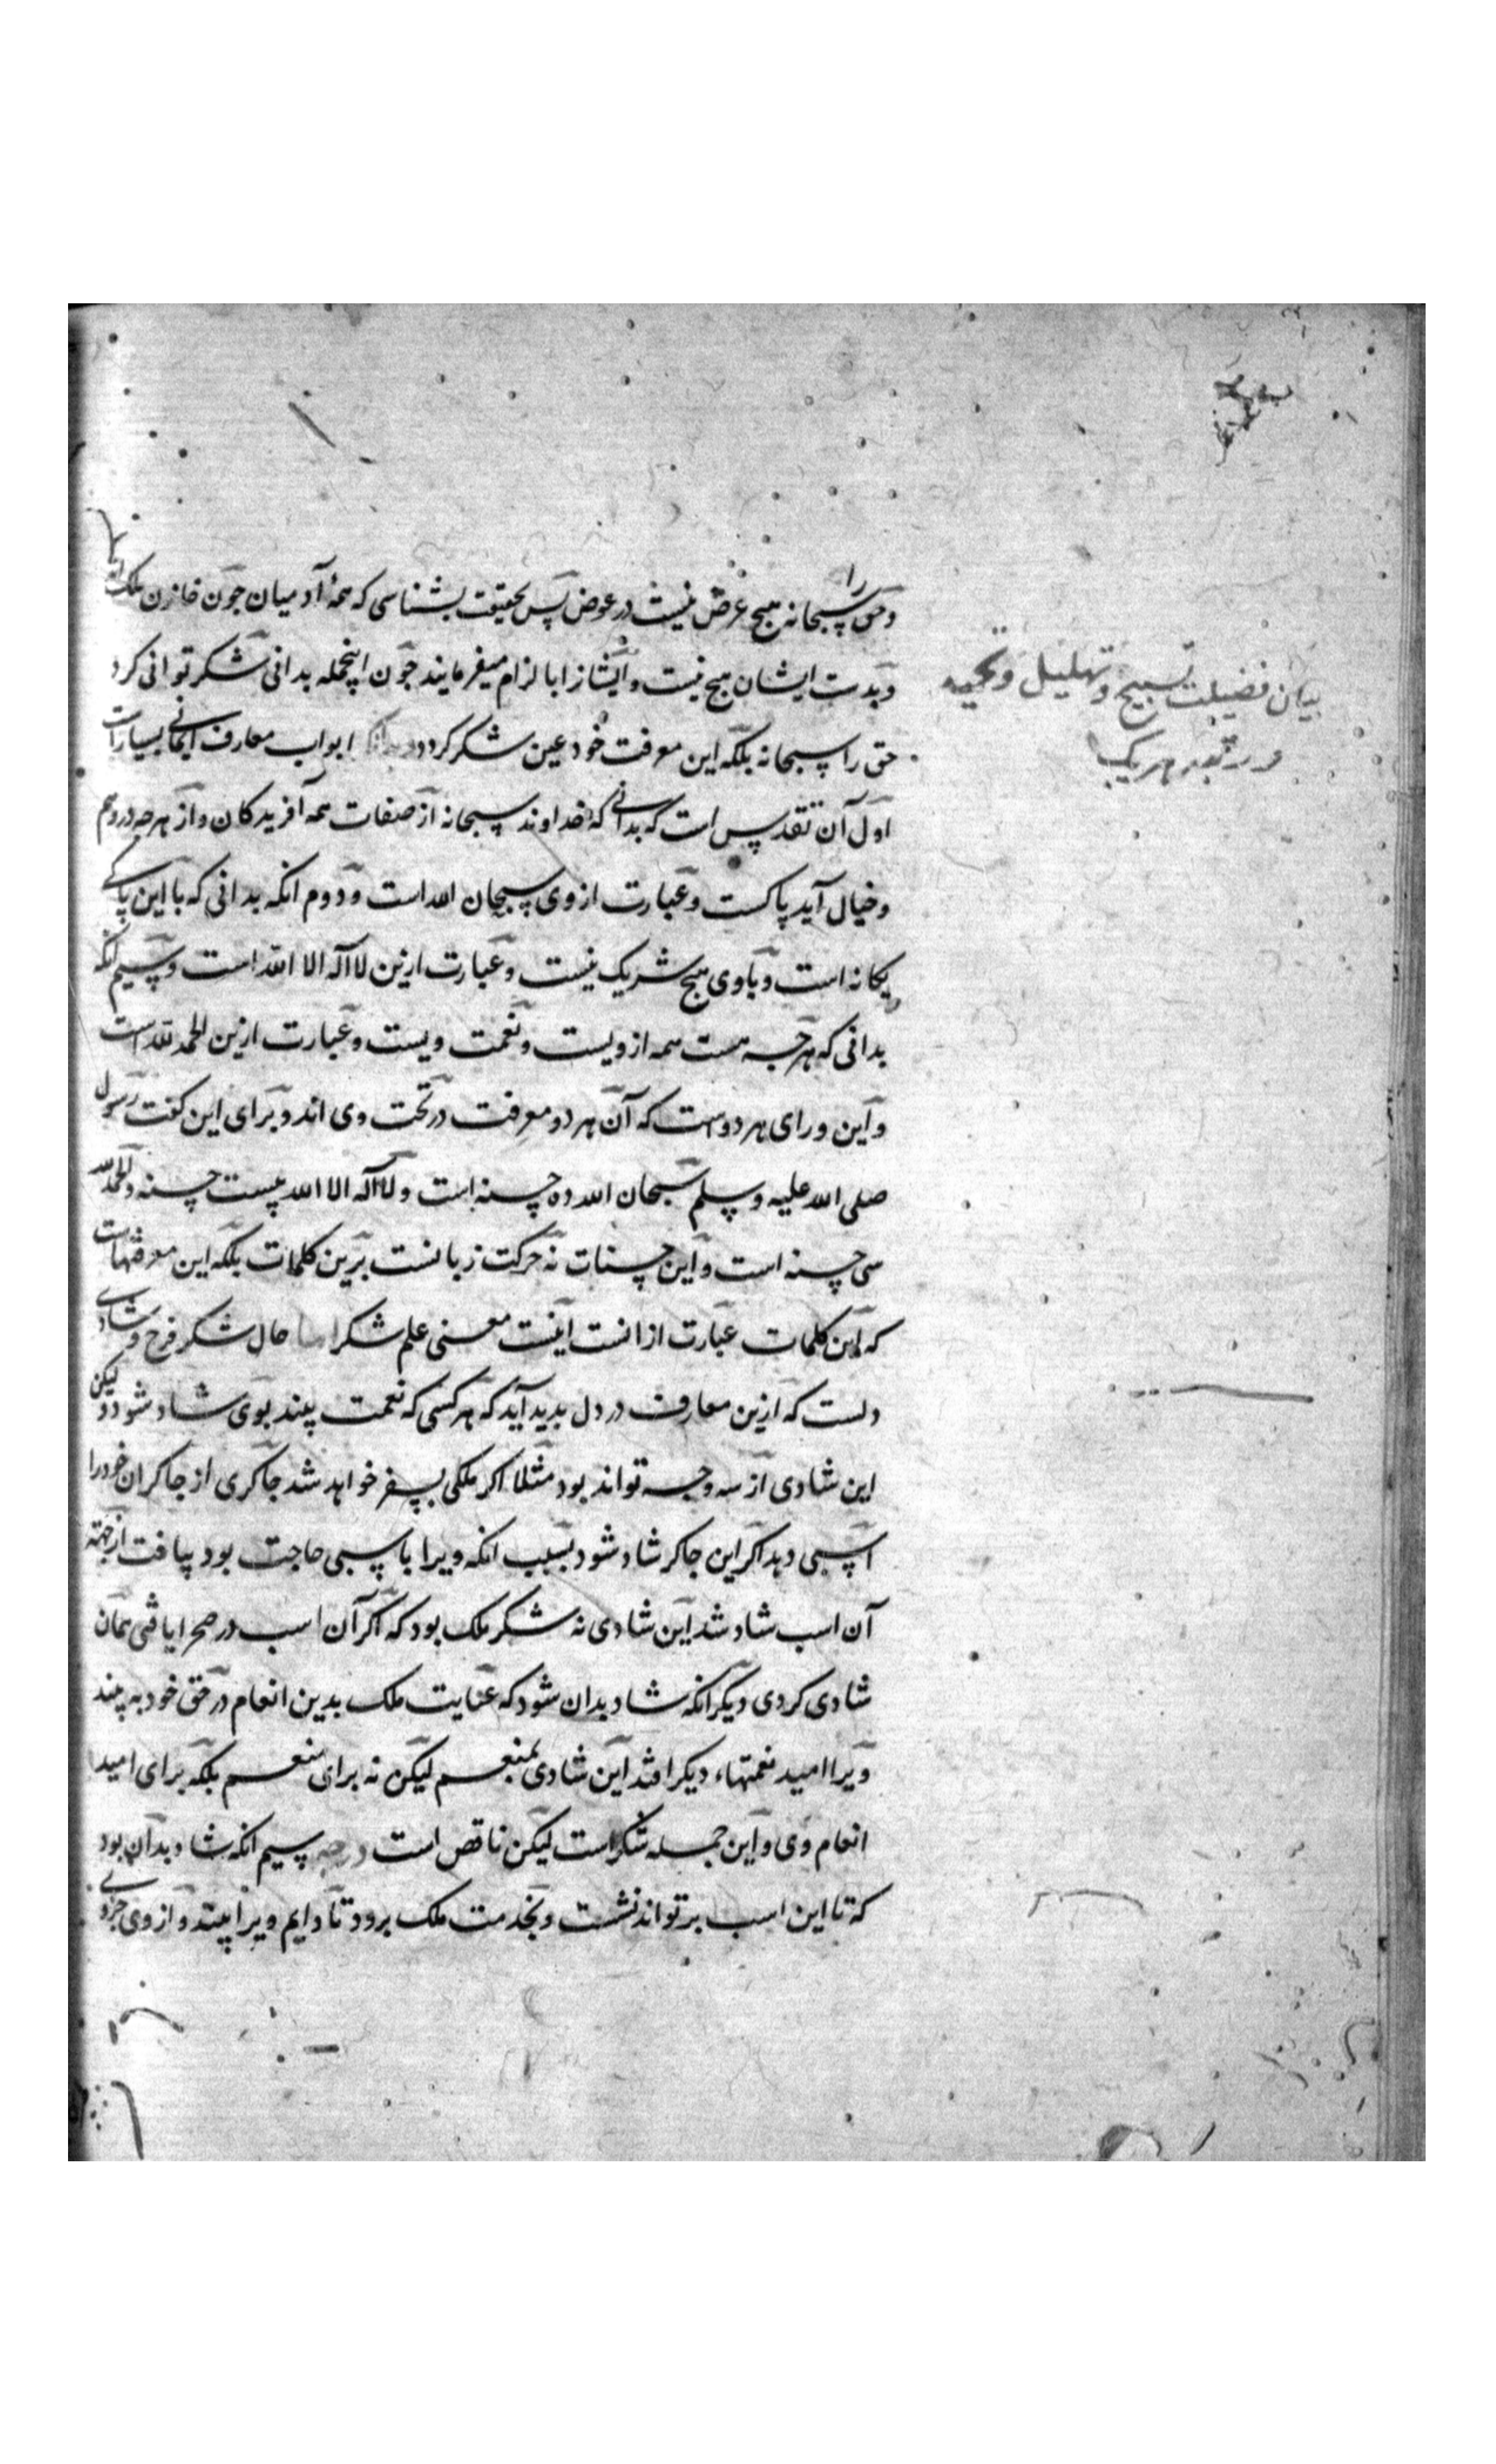 وحق را سبحانه هیچ غرض نیست در عوض پس بحقیقت بشناسی که همهٔ آدمیان چون خازن ملک اند
وبدست ایشان هیچ نیست و ایشانرا با لزام میفرمایند چون اینجمله بدانی شکر توانی کرد
حق را سبحانه بلکه این معرفت خود عین شکر کردد بدانکه ابواب معارف ایمانی بسیار است
اول آن تقدیس است که بدانی که خداوند سبحانه از صفات همه آفریدکان و از هرچه در وهم
وخیال آید پاکست وعبارت از وی سبحان الله است و دوم انکه بدانی که با این پاکی
یکانه است و باوی هیچ شریک نیست وعبارت ازین لا اله الا الله است وسیم انکه
بدانی که هرچه هست همه از ویست ونعمت ویست وعبارت ازین الحمد لله است
واین ورای هر دوست که آن هر دو معرفت در تحت وی اند و برای این کفت رسول
صلی الله علیه وسلم سبحان الله ده حسنه است ولا اله الا الله بیست حسنه والحمد لله
سی حسنه است واین حسنات نه حرکت زبانست برین کلمات بلکه این معرفتهاست
که این کلمات عبارت از انست اینست معنی علم شکر اما حال شکر فرح و شادی
دلست که ازین معارف در دل پدید آید که هر کسی که نعمت بیند بوی شاد شود ولیکن
این شادی از سه وجه تواند بود مثلا اکر ملکی بسفر خواهد شد چاکری از چاکران خود را
اسبی دهد اکر این چاکر شاد شود بسبب انکه ویرا باسبی حاجت بود بیافت از جهة
آن اسب شاد شد این شادی نه شکر ملک بود که اکر آن اسب در صحرا یافتی همان
شادی کردی دیکر انکه شاد بدان شود که عنایت ملک بدین انعام در حق خود به بیند
ویرا امید نعمتهاء دیکر افتد این شادی بمنعم لیکن نه برای منعم بلکه برای امید
انعام وی واین جمله شکر است لیکن ناقص است درجه سیم انکه شاد بدان بود
که تا این اسب بر تواند نشست وبخدمت ملک برود تا دایم ویرا بیند واز وی جزو
بیان فضیلت تسبیح وتهلیل وتحمید
هر یک